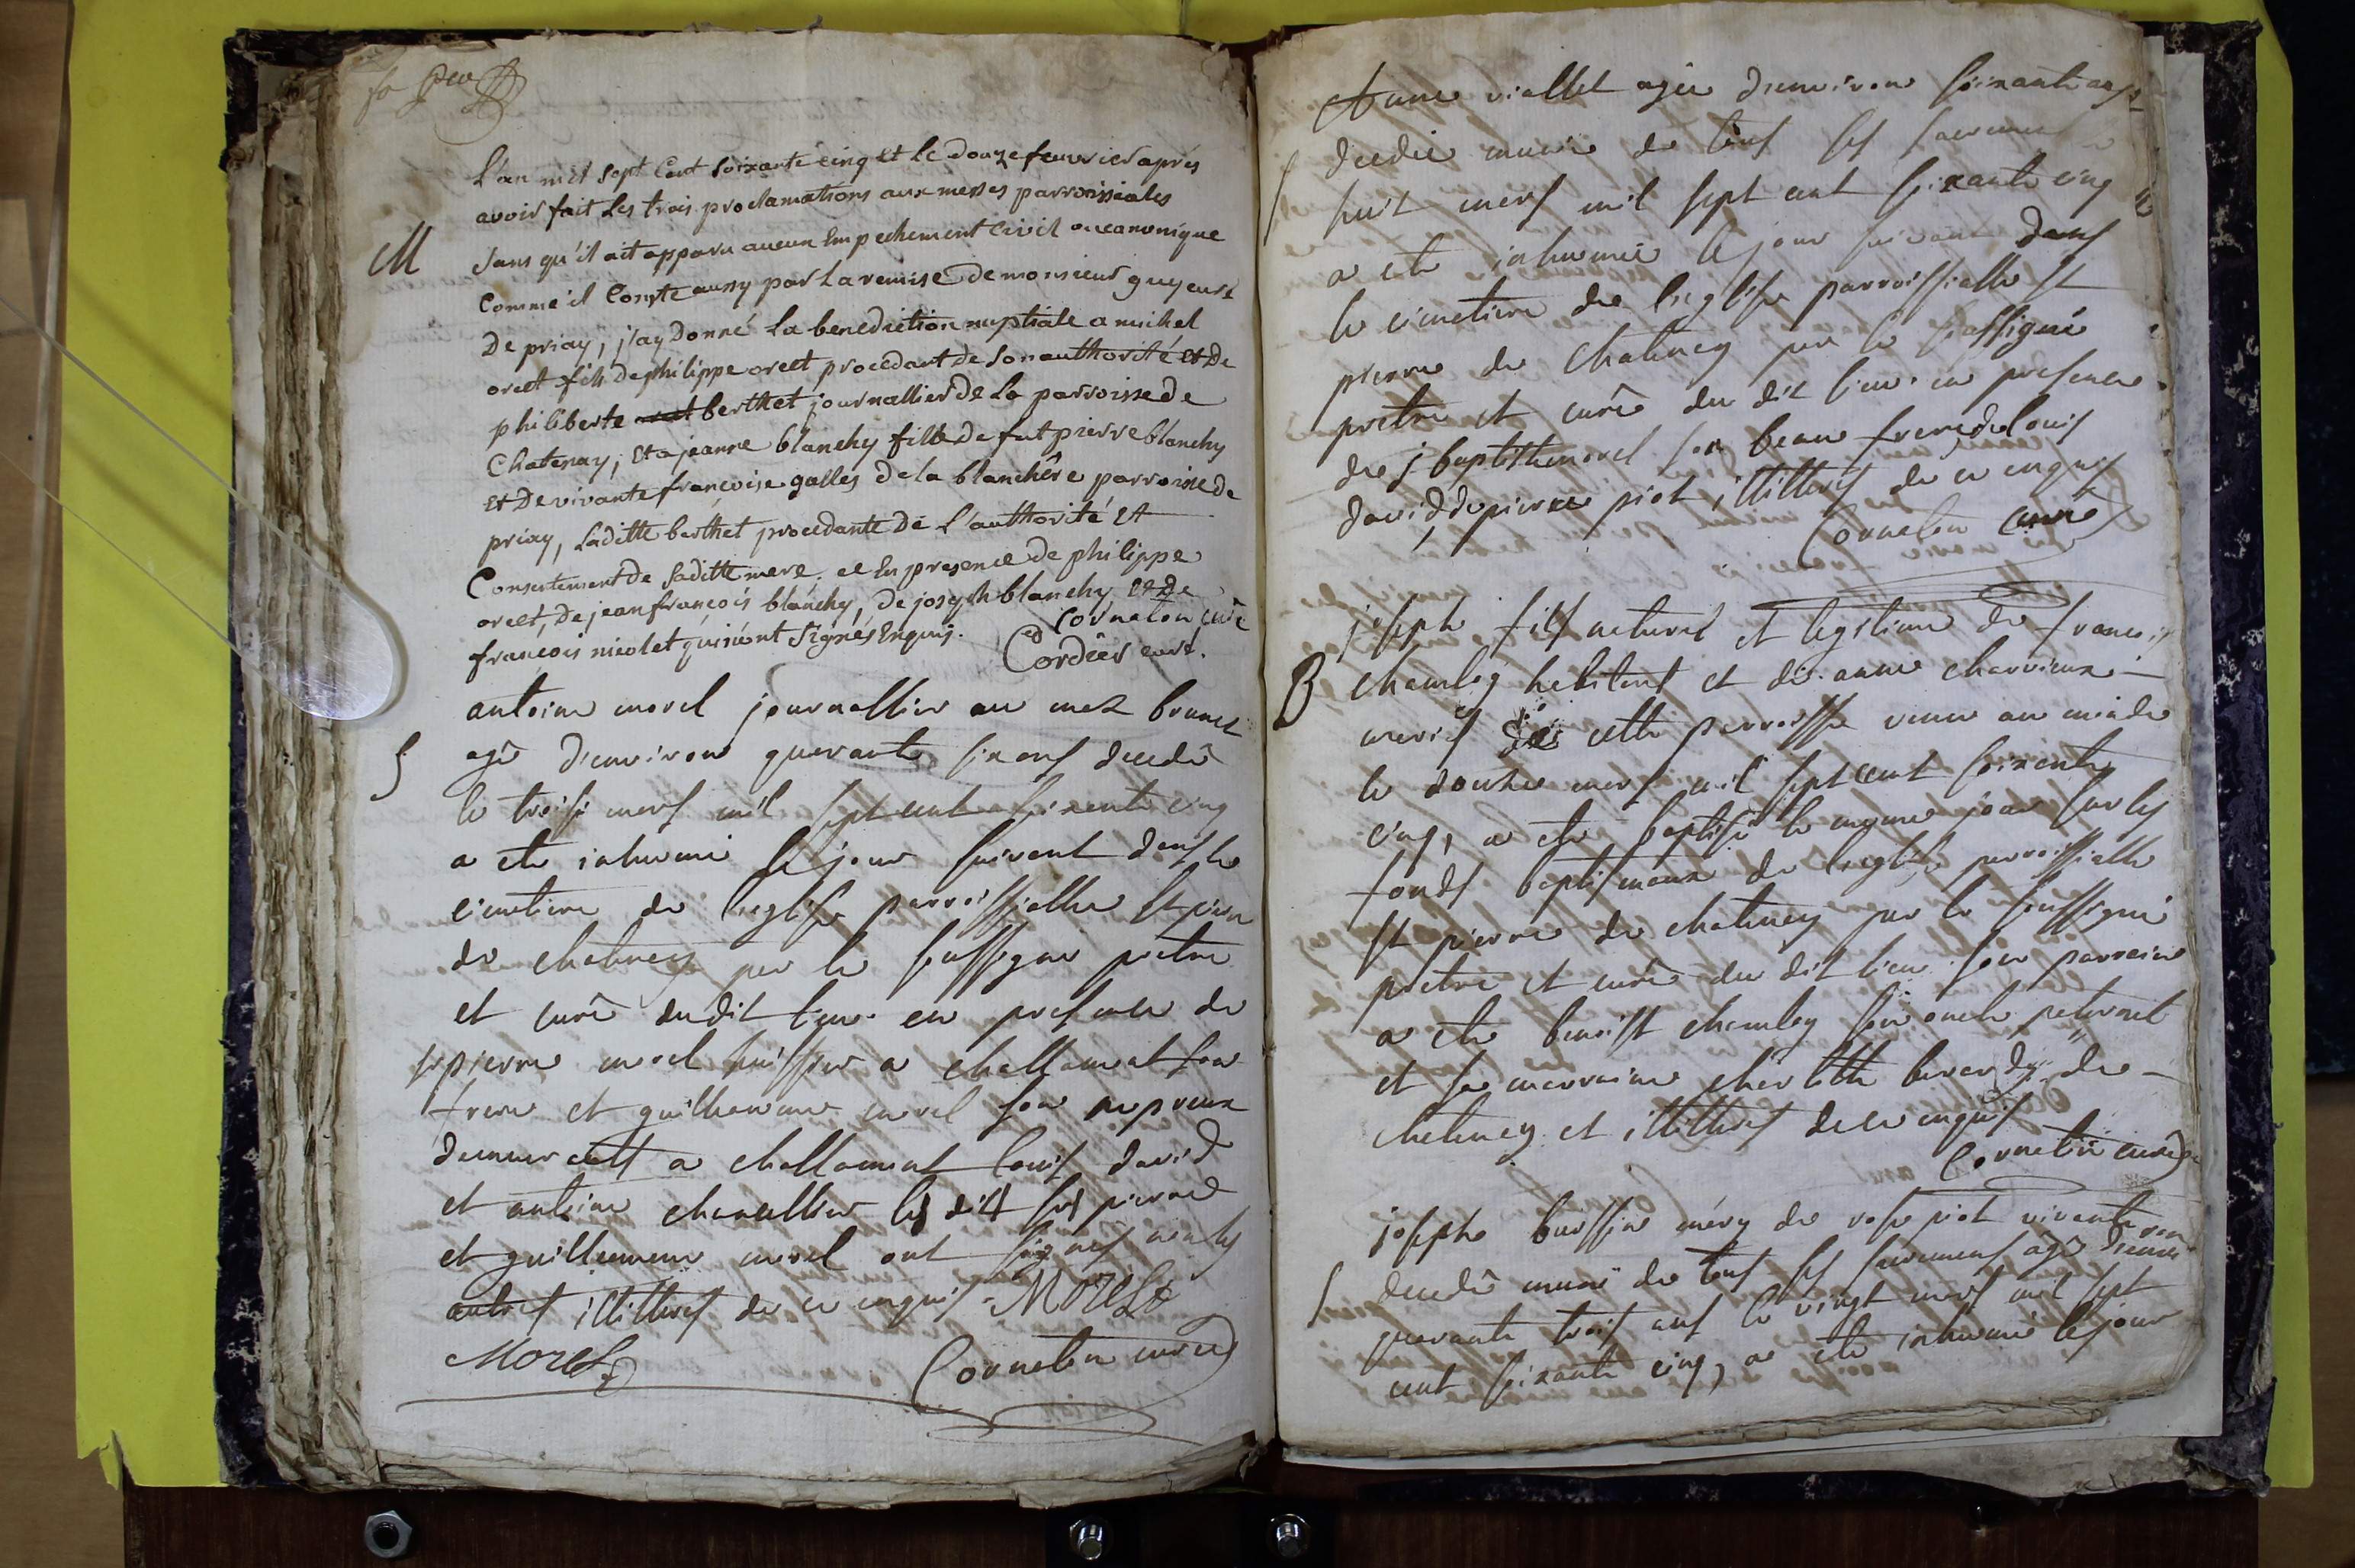 M
L'an mil sept Cent soixante cinq et le douze feuvrier après
avoir fait les trois proclamations aux messes parroissiales
sans qu'il ait apparu aucun Empechement Civil ou canonique
comme il Conste aussy par la remise de monsieur guy curé
De priay, j'ay Donné La benediction nuptiale a michel
oret fils de philippe oret procedant de son authorité et De
philiberte berthet journallier de La parroisse de
Chatenay, et a jeanne blanchy fille de fut pierre blanchy
et De vivante francoise galles de la blanchêre parroisse de
priay, Laditte berthet procedante De L'authorité et
Consentement de saditte mere, et En presence de philippe
oret, De jean francois blanchy, de joseph blanchy et de
francois nicolet qui n'ont signés Enquis. Cornaton curé
Cordier curé.
S
antoine morel journallier au mas brunet
agé d'environ quarante six ans decedé
le troisè mars mil sept cent soixante cinq
a ete inhumé le jour suivant dans le
cimetiere de l'eglise parroissialle st pierre
de chatenay par le soussigné pretre
et curé du dit lieu en presence de
sr pierre morel huissier a challamont son
frere et guilleaume morel son nepveux
demeurants a challamont louis david
et antoine chevallier les dits srs pierre
et guilleaume morel ont signés non les
autres illitteres de ce enquis. Morel
Morel Cornaton curé
Anne viallet agée d'environ soixante ans
S
decedée munie de tous ses sacrements le
huit mars mil sept cent soixante cinq
a ete inhumée le jour suivant dans
le cimetiere de l'eglise parroissialle st
pierre de chatenay par le soussigné
pretre et curé du dit lieu en presence
de j baptiste morel son beau frere, de louis
david, de pierre piot illitteres de ce enquis
Cornaton curé
B
joseph fils naturel et legitime de francois
chambry habitant et de anne charvieux
mariés de cette parroisse venu au monde
le douze mars mil sept cent soixante
cinq, a ete baptisé le mesme jour sur les
fonds baptismaux de l'eglise parroissialle
st pierre de chatenay par le soussigné
pretre et curé du dit lieu son parrain
a ete benoist chambry son oncle paternel
et sa marraine charlotte berardy de
chatenay et illitteres de ce enquis
Cornaton curé
S
josephe bussin mary de rose piot vivante
decedé muni de tous ses sacrements agé d'environ
quarante trois ans le vingt mars mil sept
cent soixante cinq, a ete inhumé le jour